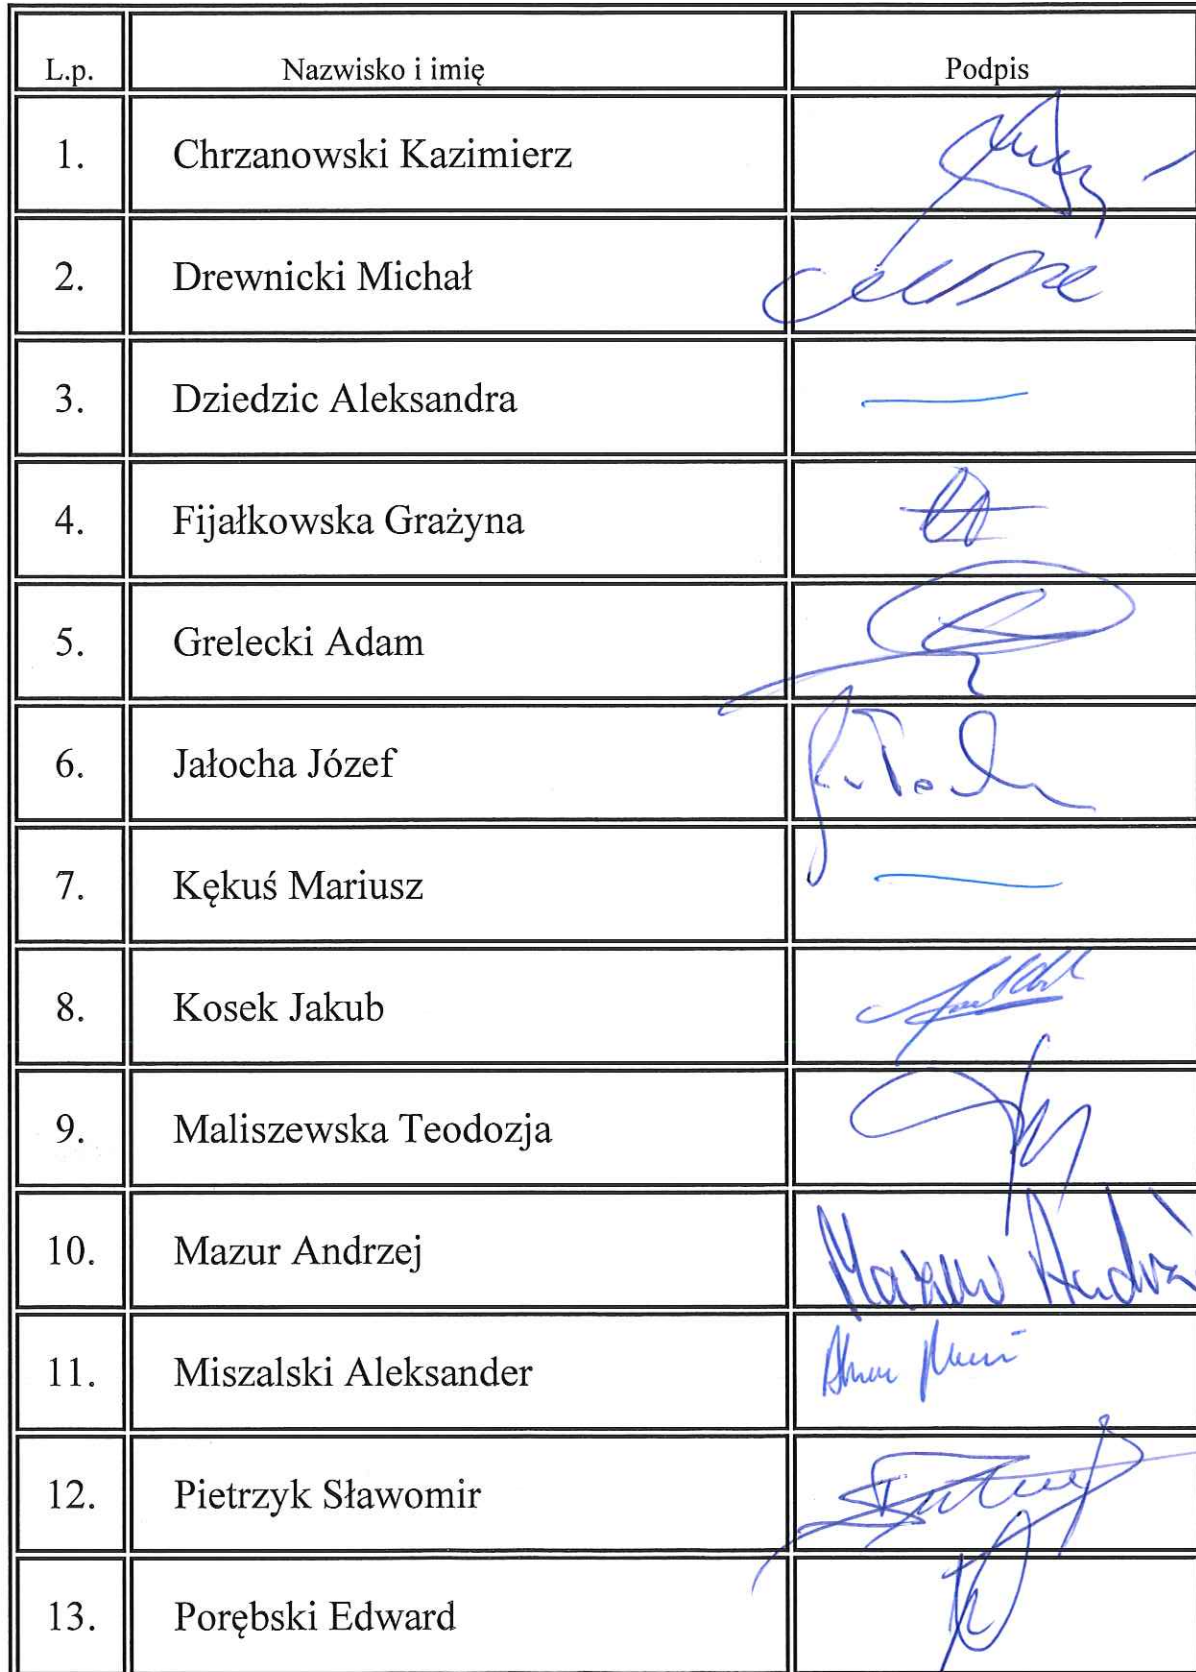 L.p. Nazwisko i imię Podpis
1. Chrzanowski Kazimierz
2. Drewnicki Michał
3. Dziedzic Aleksandra —
4. Fijałkowska Grażyna
5. Grelecki Adam
6. Jałocha Józef
7. Kękuś Mariusz —
8. Kosek Jakub
9. Maliszewska Teodozja
10. Mazur Andrzej Mazur Andrzej
11. Miszalski Aleksander
12. Pietrzyk Sławomir
13. Porębski Edward